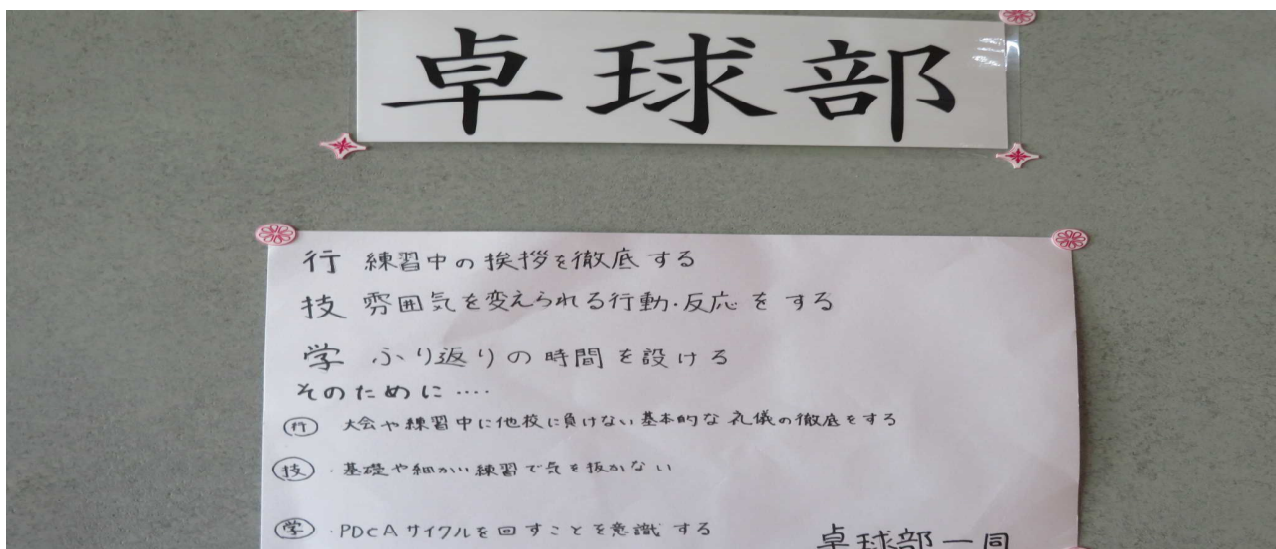 卓球部
行 練習中の挨拶を徹底する
技 雰囲気を変えられる行動・反応をする
学 ふり返りの時間を設ける
そのために‥‥
行 大会や練習中に他校に負けない基本的な礼儀の徹底をする
技 ・基礎や細かい練習で気を抜かない
学 ・PDCAサイクルを回すことを意識する
卓球部一同